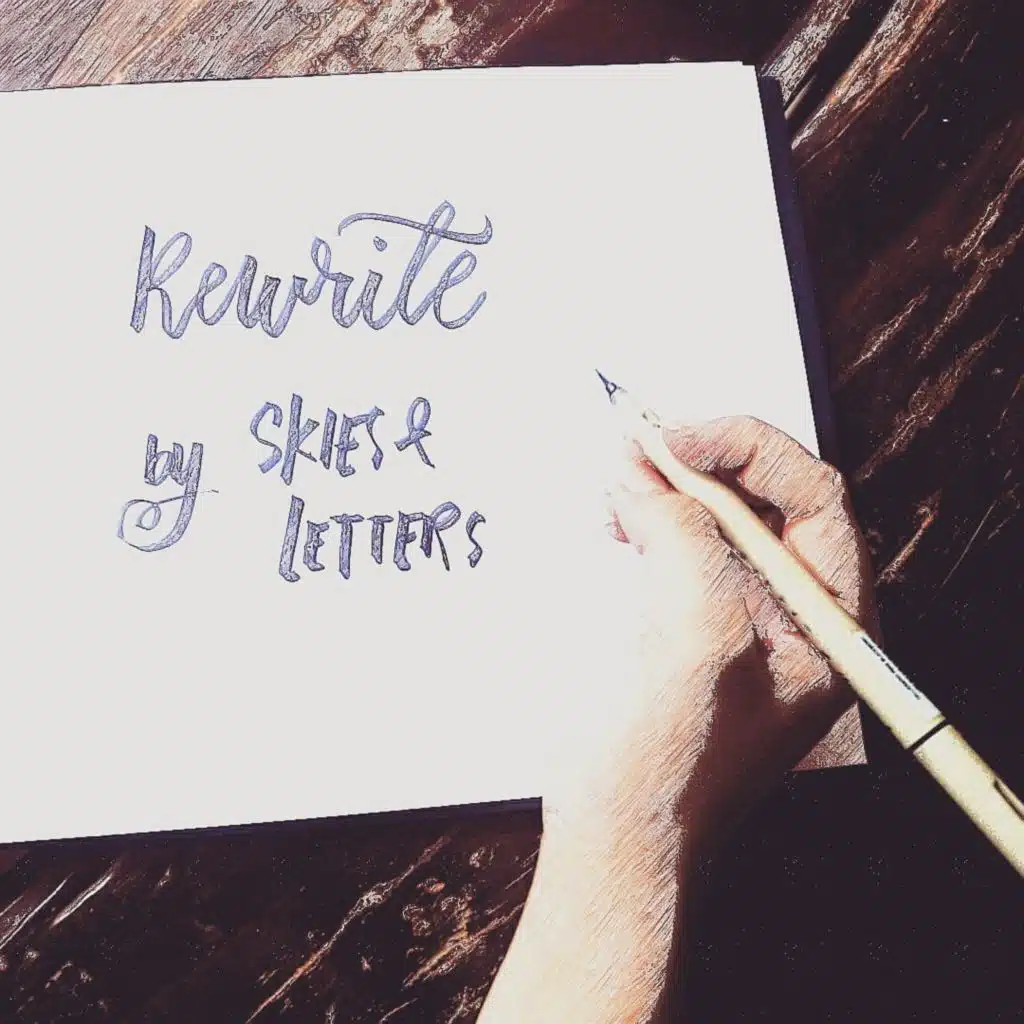 Rewrite
by SKIES &
LETTERS